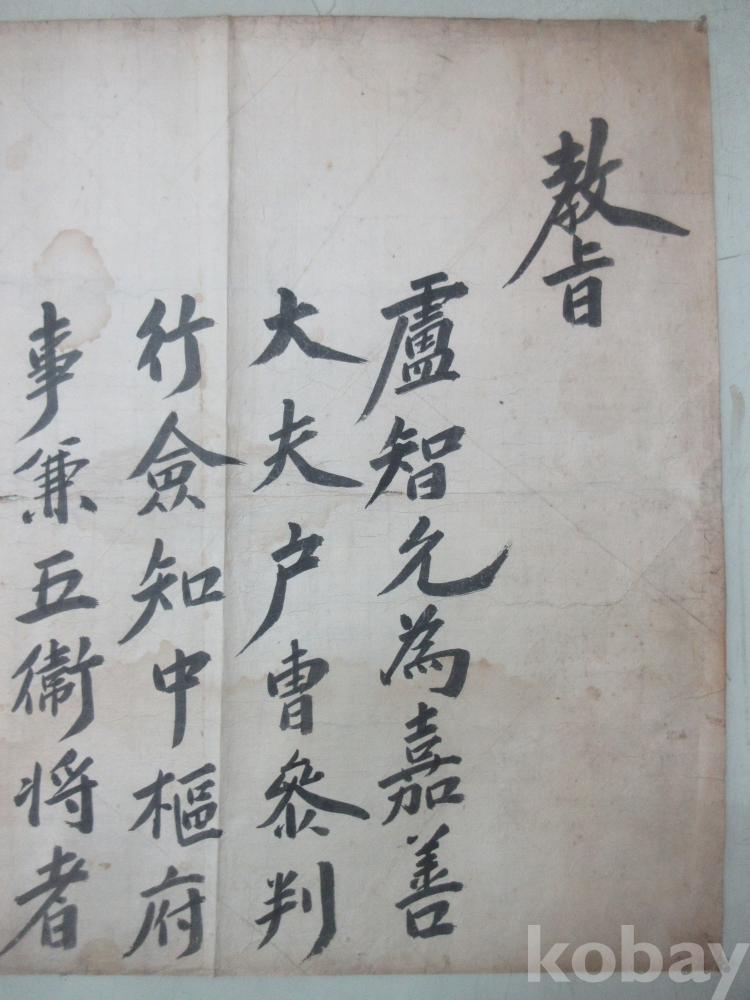 敎旨
盧智允為嘉善
大夫户曺叅判
行僉知中樞府
事兼五衛将者
kobay